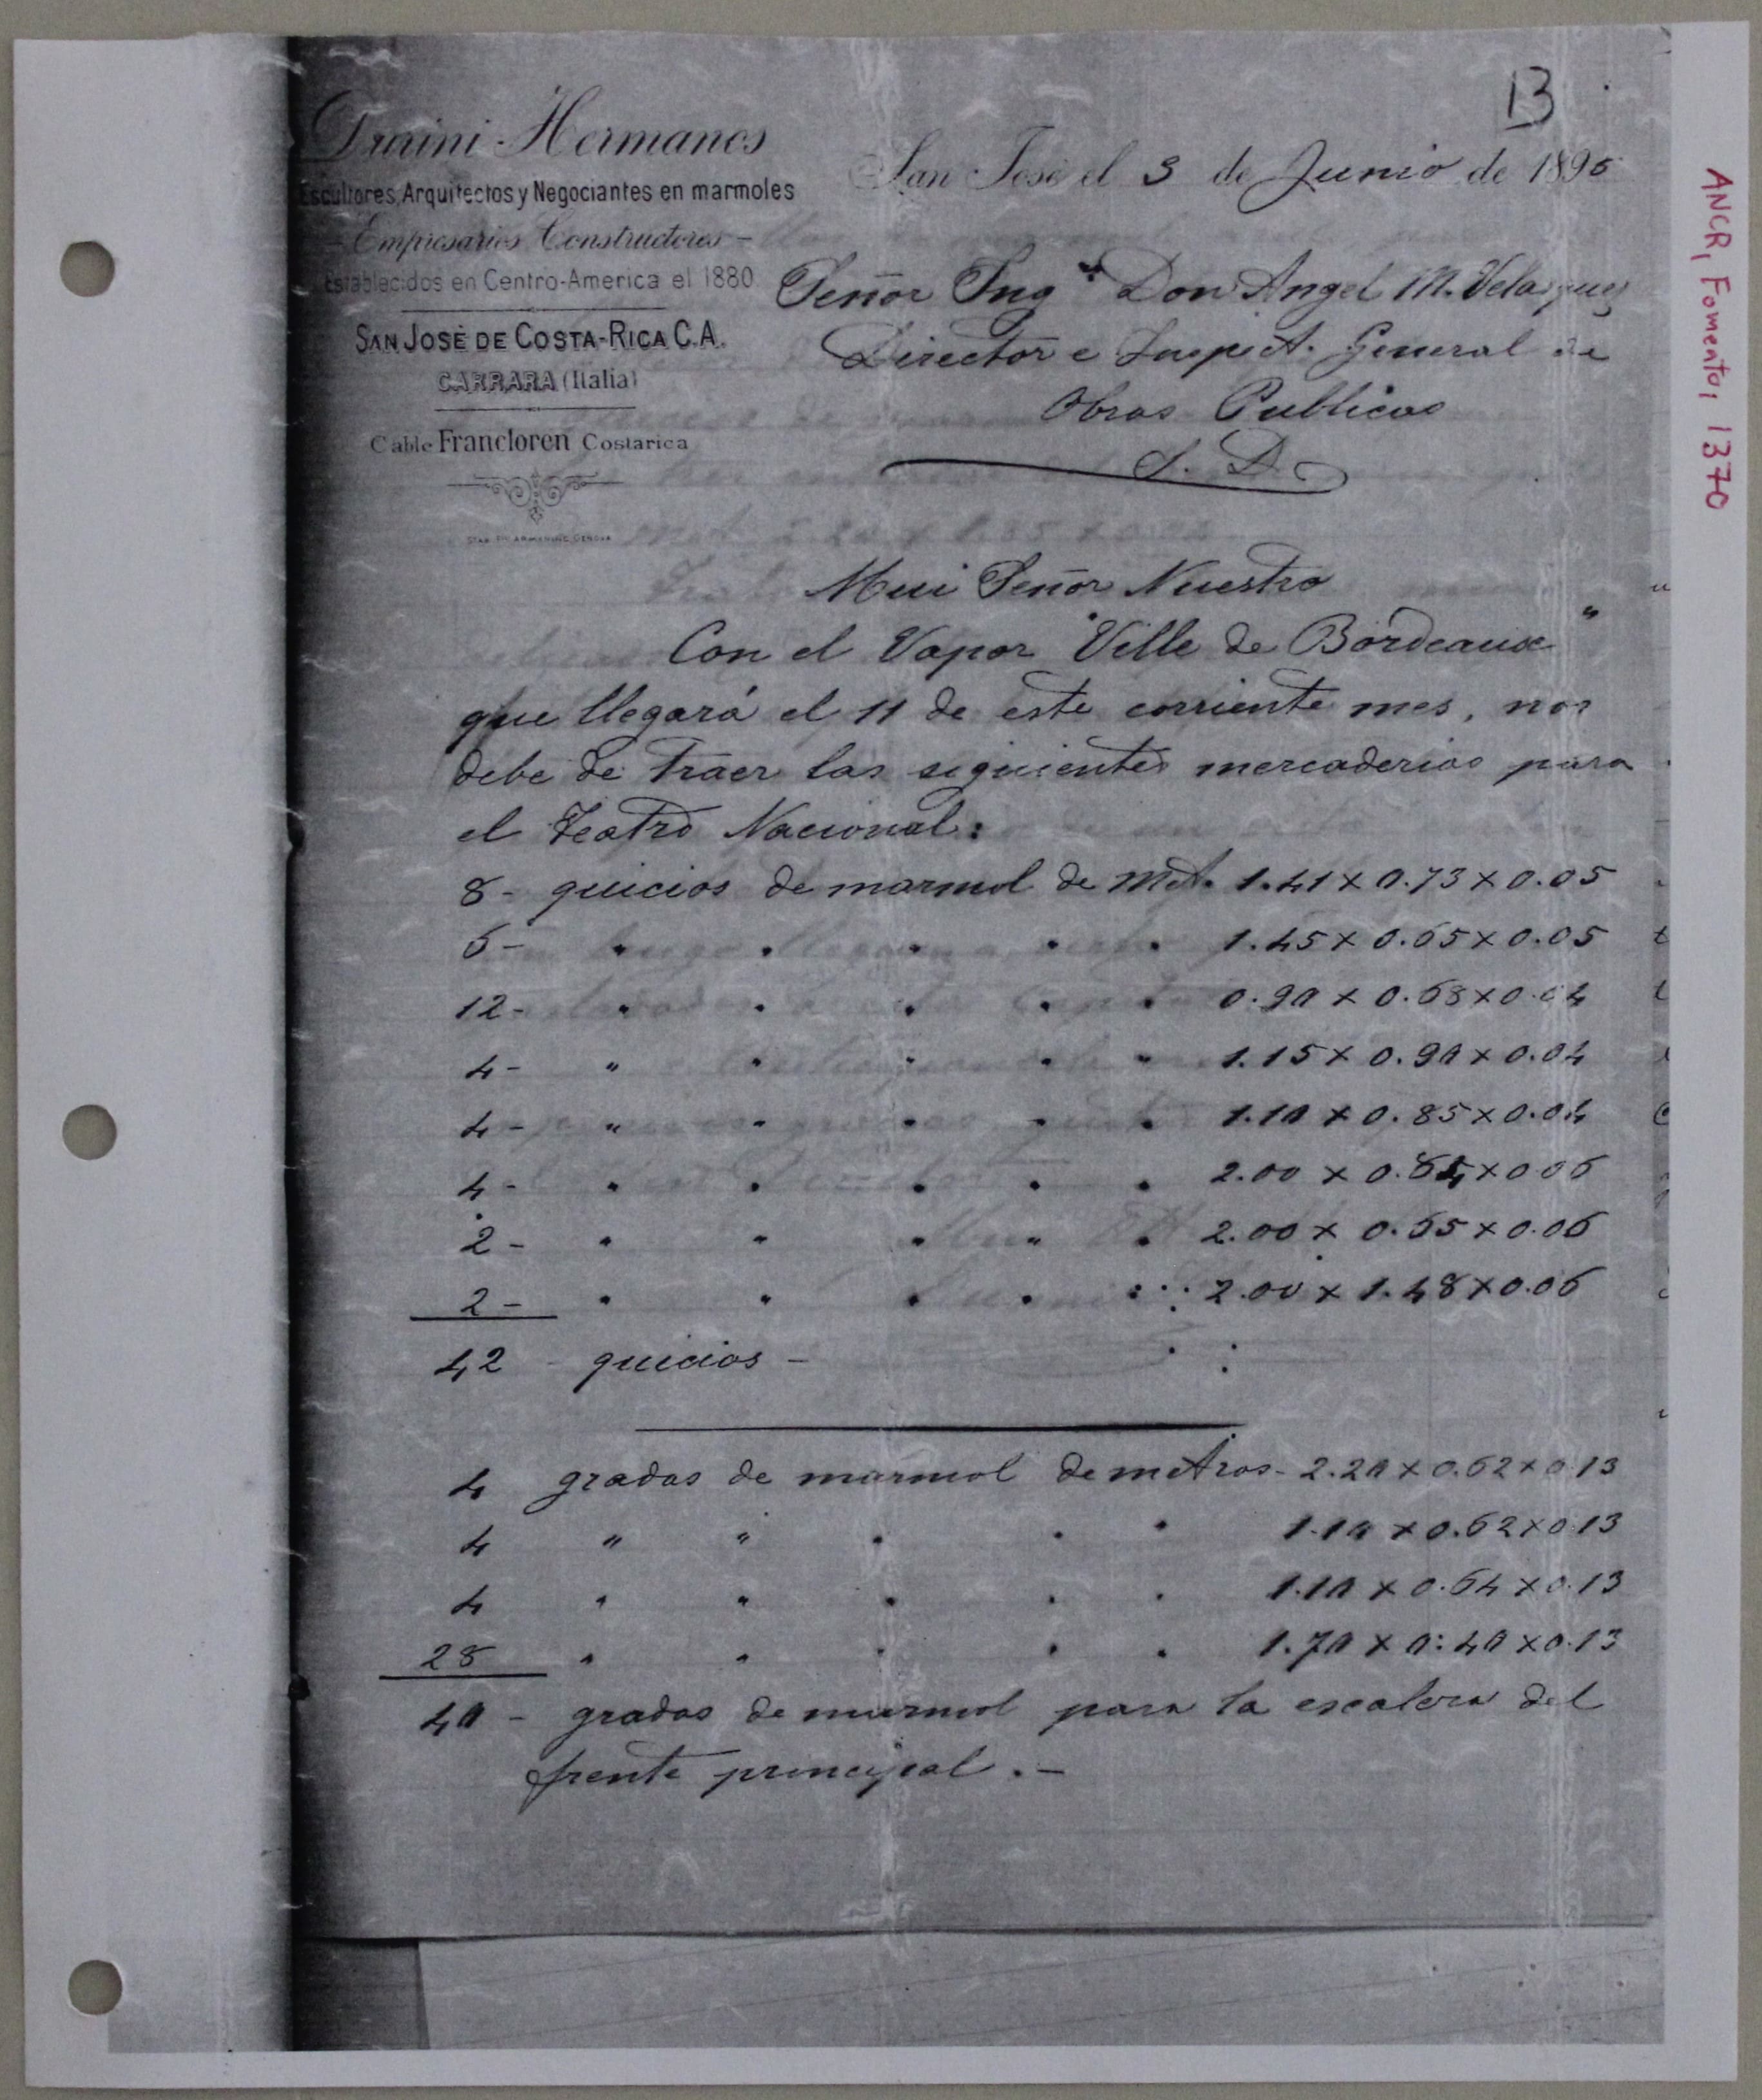 13
Durini Hermanos
Escultores, Arquitectos y Negociantes en marmoles
- Empresarios Constructores -
Establecidos en Centro-America el 1880
SAN JOSÉ DE COSTA-RICA C.A.
CARRARA (Italia)
Cable Francloren Costarica
San José el 3 de Junio de 1896
Señor Ing° Don Angel M. Velasquez
Director e Inspect. General de
Obras Publicas
S. D.
Mui Señor Nuestro
Con el Vapor "Ville de Bordeaux"
que llegará el 11 de este corriente mes, nos
debe de traer las siguientes mercaderias para
el Teatro Nacional:
8 - quicios de marmol de Met. 1.41 x 0.73 x 0.05
6 - " " " " " 1.45 x 0.65 x 0.05
12 - " " " " " 0.90 x 0.68 x 0.04
4 - " " " " " 1.15 x 0.90 x 0.04
4 - " " " " " 1.10 x 0.85 x 0.04
4 - " " " " " 2.00 x 0.64 x 0.06
2 - " " " " " 2.00 x 0.65 x 0.06
2 - " " " " " 2.00 x 1.48 x 0.06
42 - quicios -
4 gradas de marmol de metros - 2.20 x 0.62 x 0.13
4 " " " " " 1.10 x 0.62 x 0.13
4 " " " " " 1.10 x 0.64 x 0.13
28 " " " " " 1.70 x 0.40 x 0.13
40 - gradas de marmol para la escalera del
frente principal. -
ANCR, Fomento, 1370